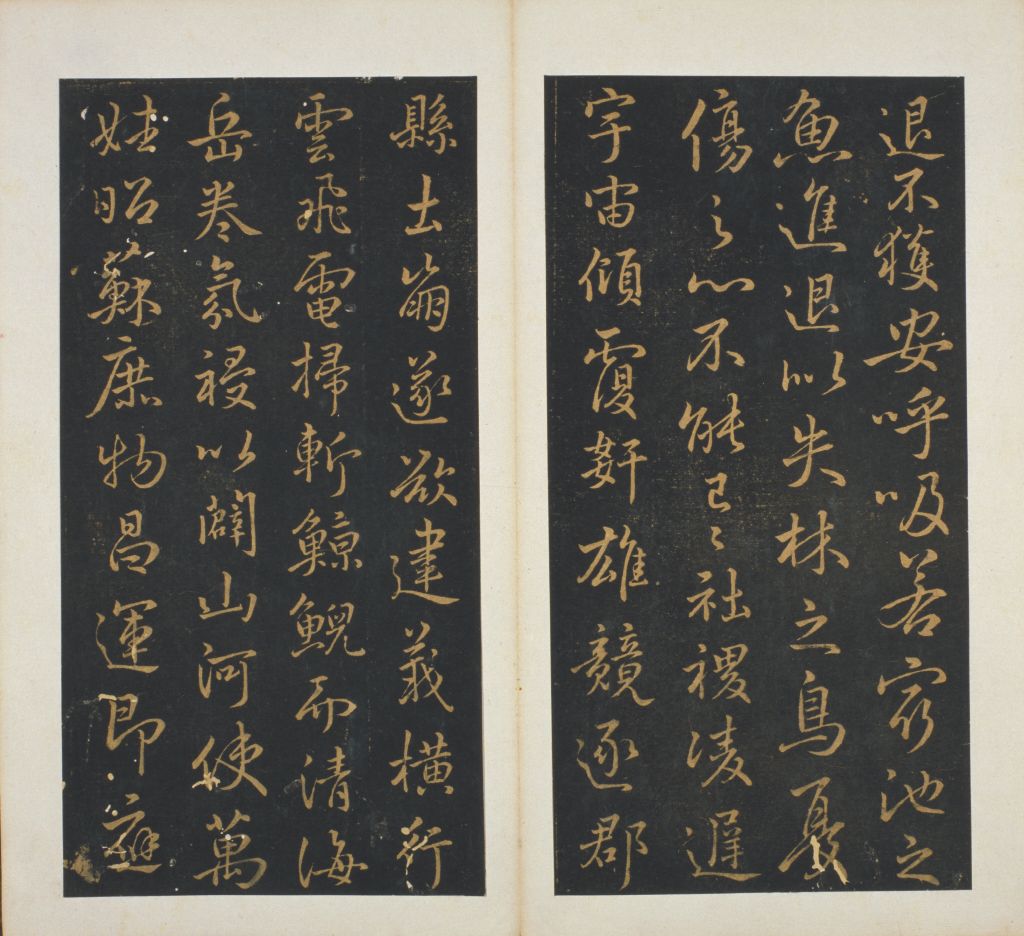 退不獲安呼吸若窮池之
魚進退以失林之鳥憂
傷之心不能已〻社稷凌遲
宇宙傾覆姧雄競逐郡
縣土崩遂欲建義橫行
雲飛電掃斬鯨鯢而清海
岳卷氛祲以闢山河使萬
姓昭蘇庶物昌運即